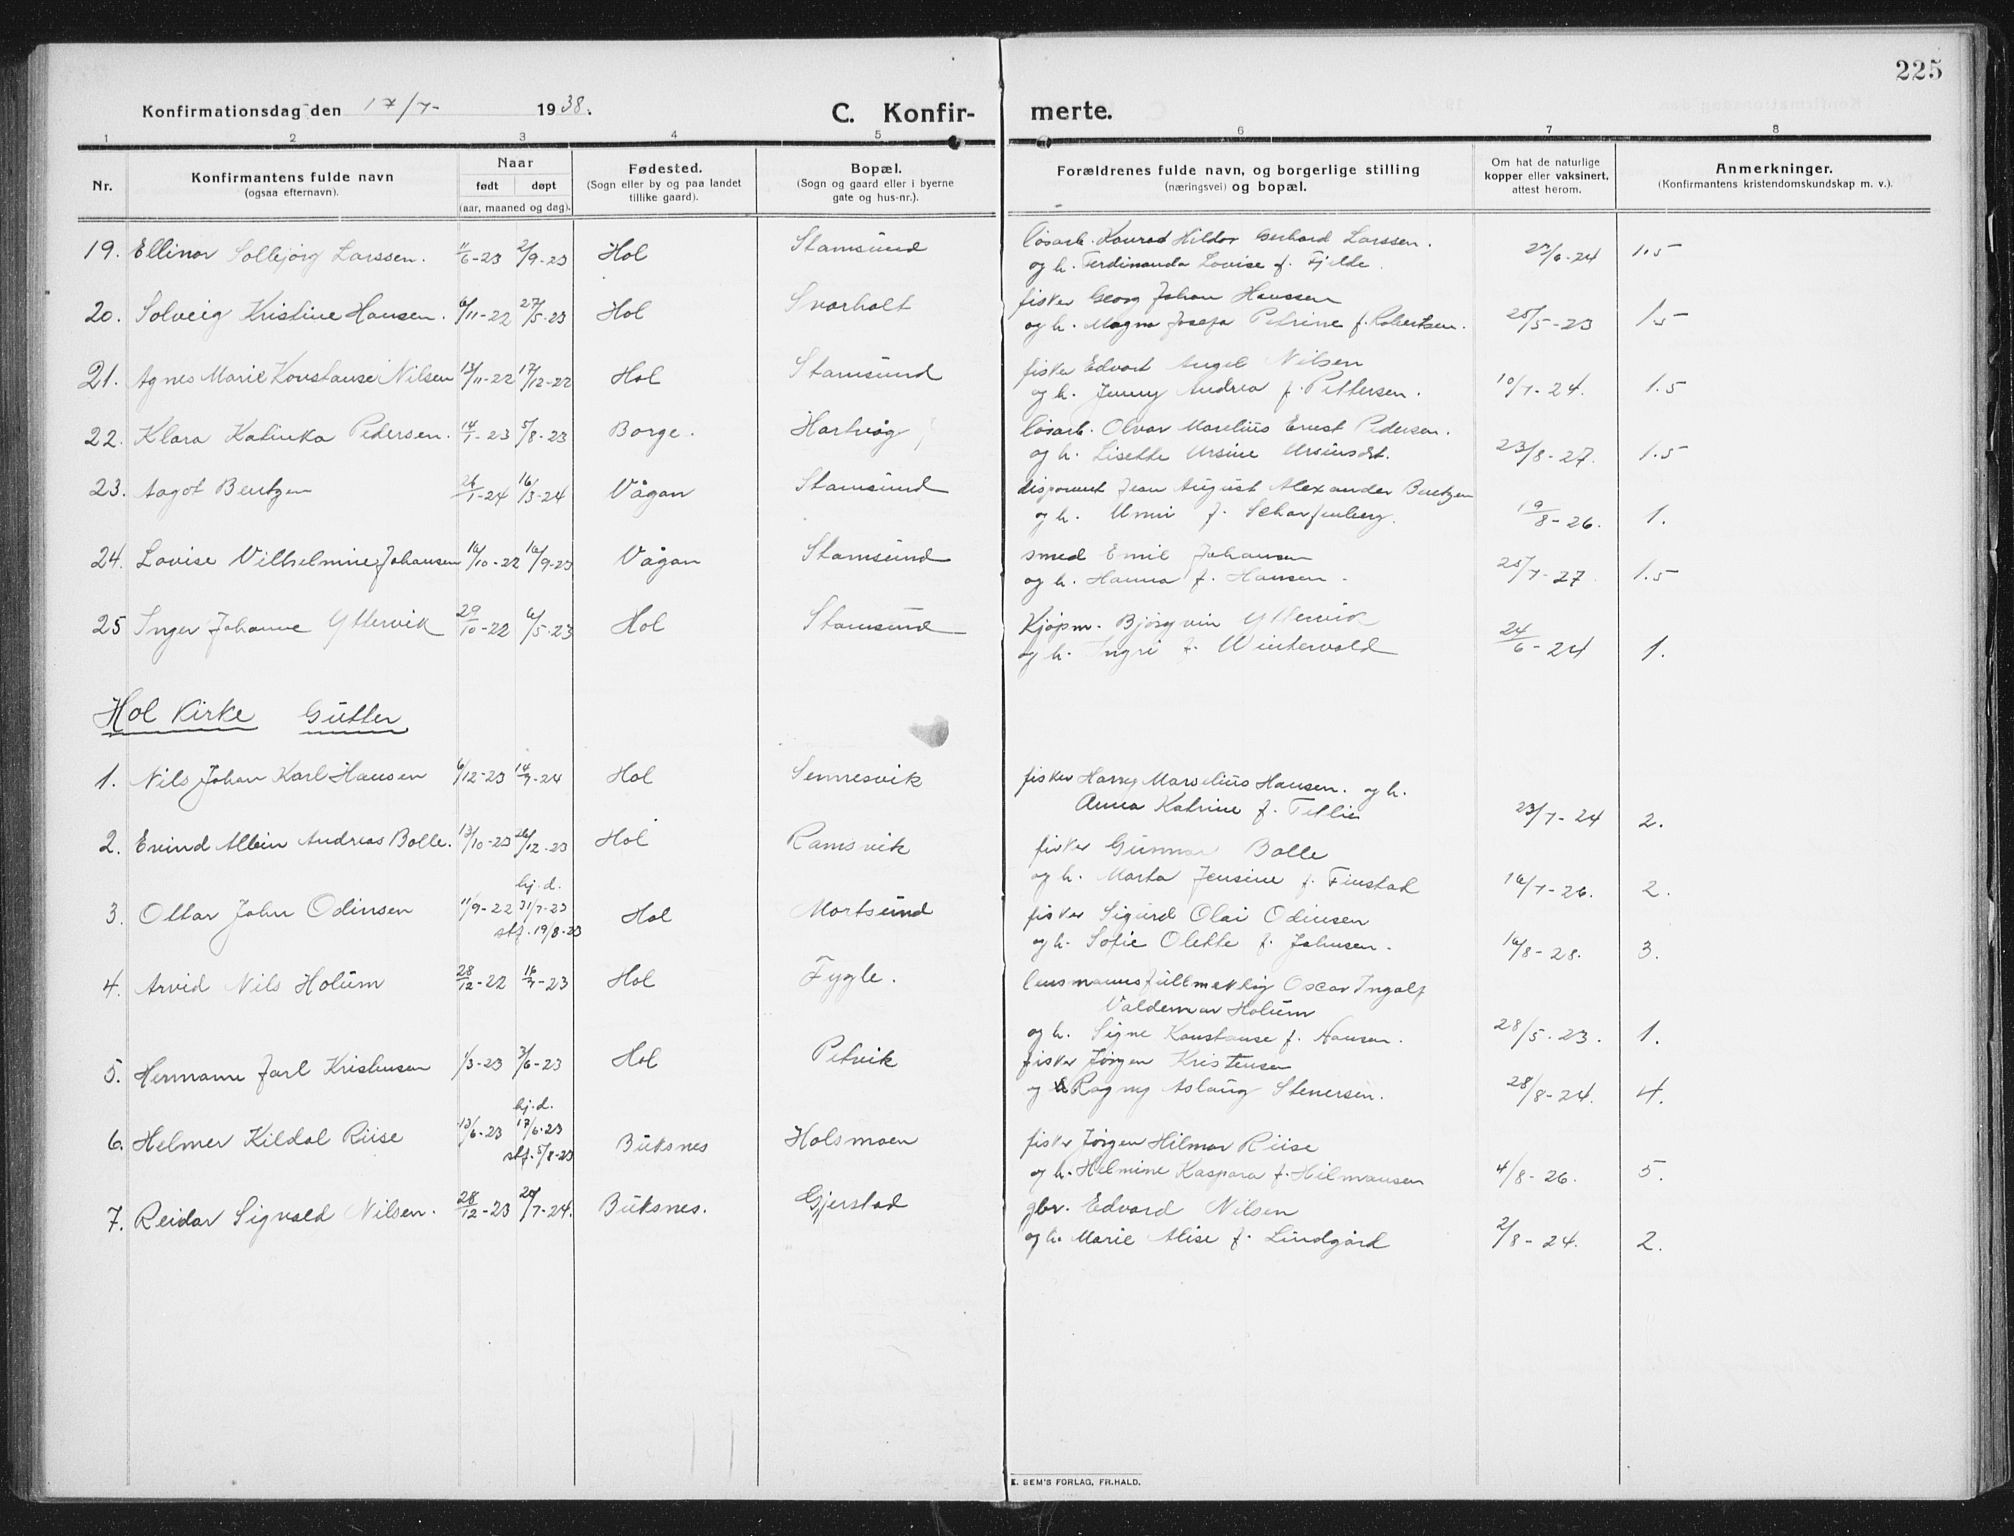 225
Konfirmationsdag den 17/7- 1938. C. Konfirmerte.
1 2 3 4 5 6 7 8
Nr. Konfirmantens fulde navn (ogsaa efternavn). Naar født døpt (aar, maaned og dag). Fødested. (Sogn eller by og paa landet tillike gaard). Bopæl. (Sogn og gaard eller i byerne gate og hus-nr.). Forældrenes fulde navn, og borgerlige stilling (næringsvei) og bopæl. Om hat de naturlige kopper eller vaksinert, attest herom. Anmerkninger. (Konfirmantens kristendomskundskap m. v.).
19. Ellinor Solbjørg Larssen. 11/6-23 2/9-23 Hol Stamsund løsarb. Konrad Hildor Gerhard Larssen.
og h. Ferdinanda Lovise f. Fjelde. 23/6-24 1.5
20. Solveig Kristine Hansen. 6/11-22 27/5-23 Hol Svarholt fisker Georg Johan Hanssen
og h. Magna Josefa Petrine f. Robertsen. 25/5-23 1.5
21. Agnes Marie Konstanse Nilsen 13/11-22 17/12-22 Hol Stamsund fisker Edvart Angel Nilsen
og h. Jenny Andrea f. Pettersen. 10/7-24. 1.5
22. Klara Katinka Pedersen. 14/1-23 5/8-23 Borge. Hartvåg løsarb. Olvar Marelius Ernst Pedersen.
og h. Lisette Ursine Ursinsdt. 23/8-27. 1.5
23. Aagot Bentzen 26/1-24 16/3-24 Vågan Stamsund disponent Jean August Alexander Bentzen
og h. Unni f. Scharfenberg. 19/8-26. 1.
24. Lovise Vilhelmine Johansen 16/10-22 16/9-23 Vågan Stamsund smed Emil Johansen
og h. Hanna f. Hansen. 25/7-27 1.5
25 Inger Johanne Yttervik 29/10-22 6/5-23 Hol Stamsund Kjøpm. Bjørgvin Yttervik
og h. Ingri f. Wintervold 24/6-24 1.
Hol Kirke Gutter
1. Nils Johan Karl Hansen 6/12-23 14/7-24 Hol Sennesvik fisker Harry Marselius Hansen. og h.
Anna Katrine f. Tetlie 23/7-24 2.
2. Evind Albin Andreas Bolle. 13/10-23 26/12-23 Hol Ramsvik fisker Gunnar Bolle
og h. Marta Jensine f. Finstad 16/7-26. 2.
hj.d.
3. Ottar John Odinsen 11/9-22 31/7-23 Hol Mortsund fisker Sigurd Olai Odinsen
stf. 19/8-23
og h. Sofie Olette f. Johnsen. 16/8-28. 3.
4. Arvid Nils Holum 28/12-22 16/7-23 Hol Fygle. lensmannsfullmektig Oscar Ingolf
Valdemar Holum
og h. Signe Konstanse f. Hansen. 28/5-23. 1.
5. Hermann Jarl Kristensen 1/3-23 3/6-23 Hol Petvik fisker Jørgen Kristensen
og Ragny Aslaug Stenersen. 28/8-24. 4.
hj.d.
6. Helmer Kildal Riise 13/6-23 17/6-23 Buksnes Holsmoen fisker Jørgen Hilmar Riise
stf. 5/8-23
og h. Helmine Kaspara f. Hilmansen 4/8-26. 5.
7. Reidar Sigvald Nilsen. 28/12-23 20/7-24. Buksnes. Gjerstad gbr. Edvard Nilsen
og h. Marie Alise f. Lindgård 2/8-24. 2.
E. SEM'S FORLAG, FR.HALD.